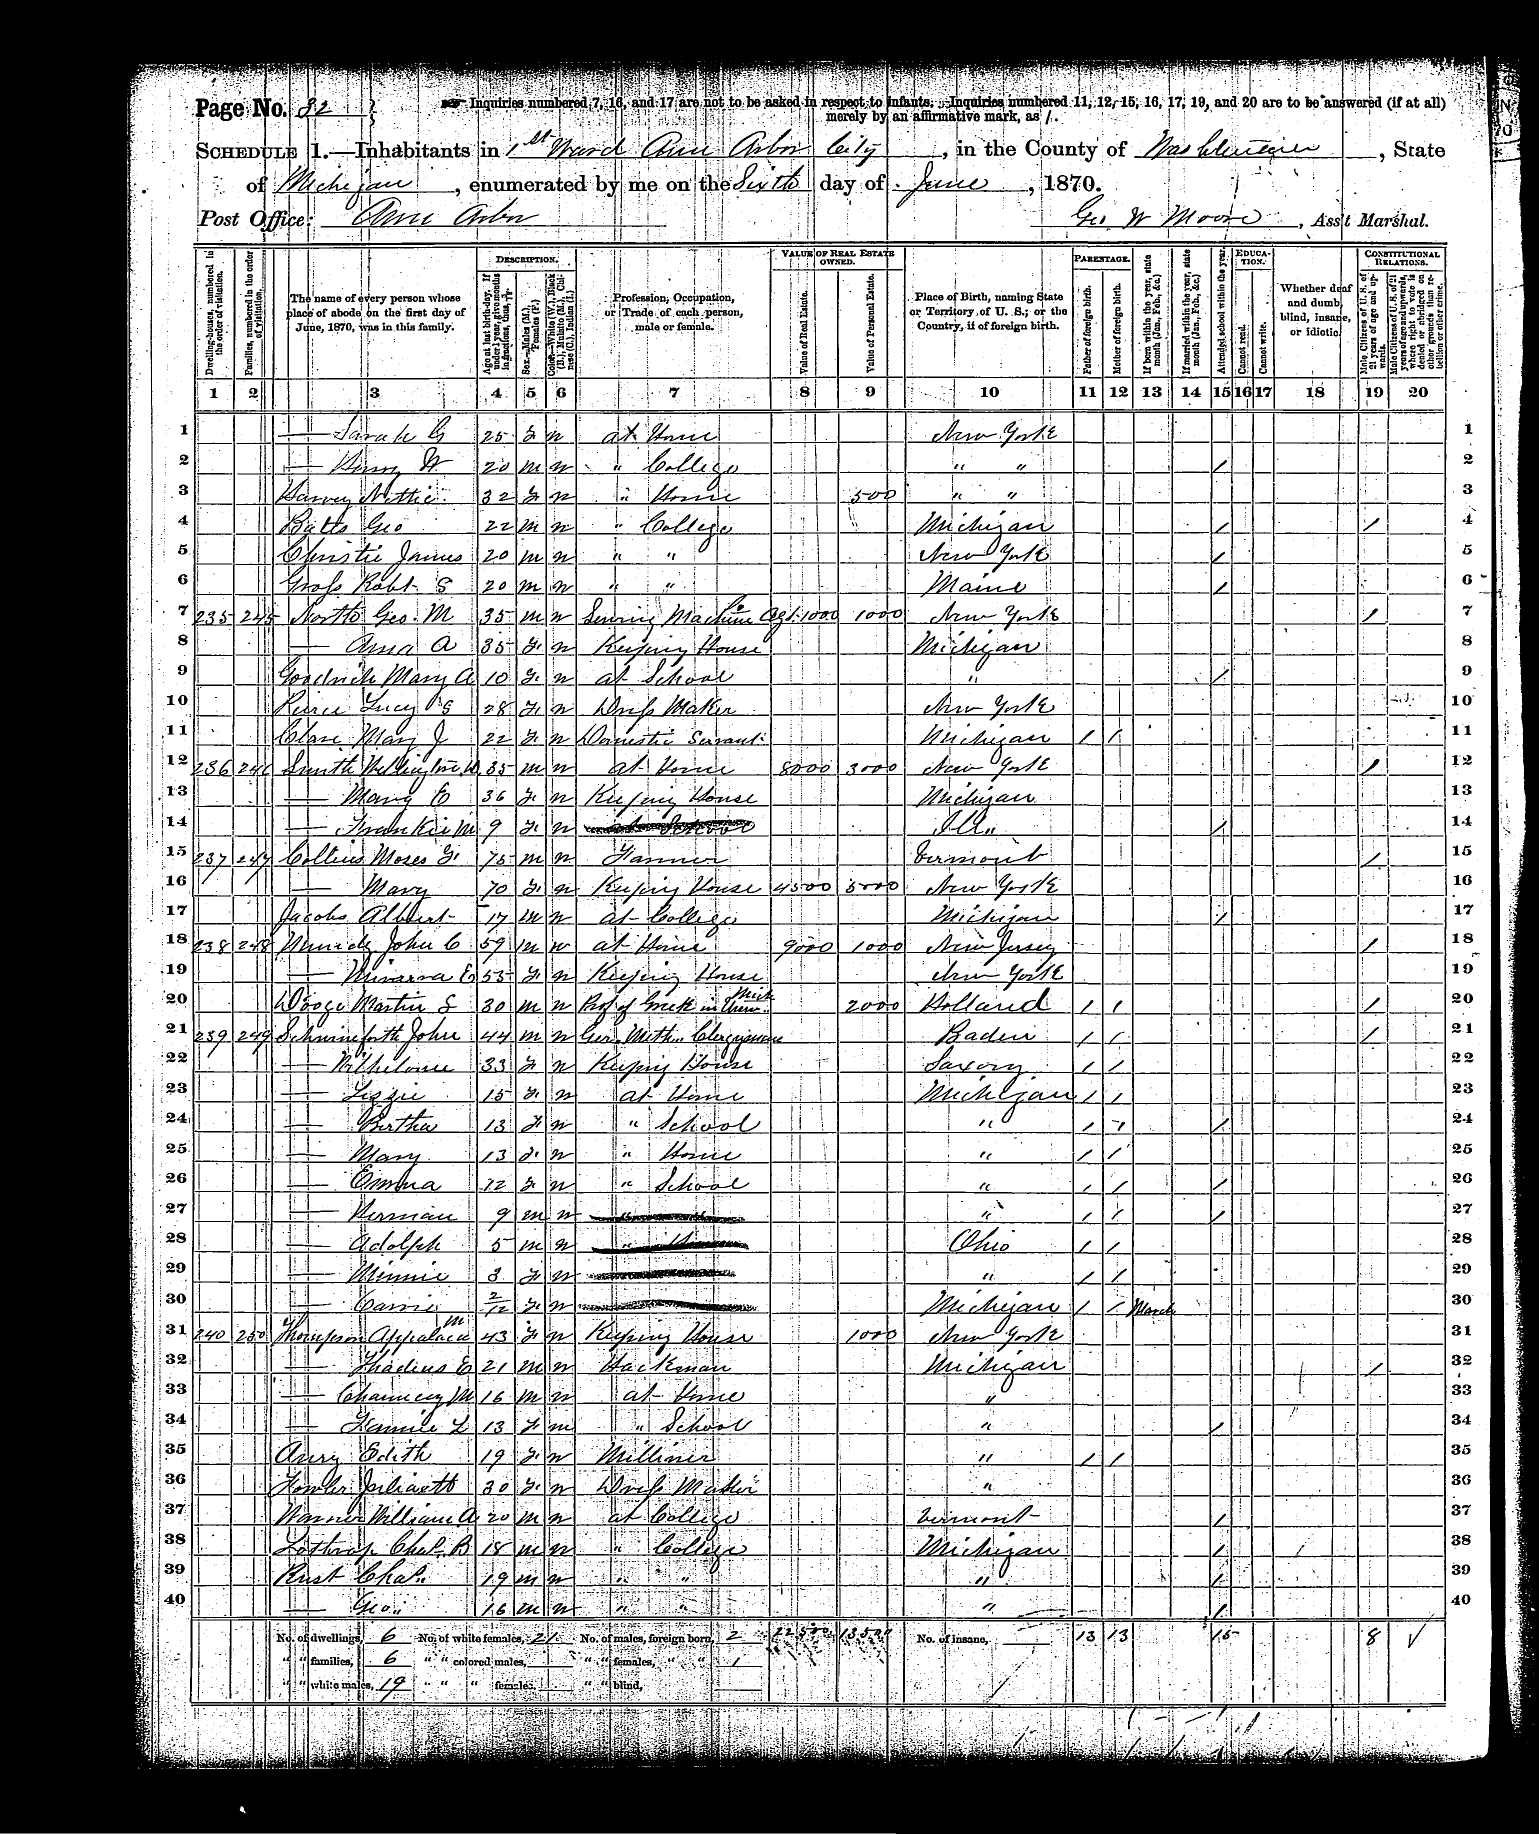 Page No. 32
Inquiries numbered 7, 16, and 17 are not to be asked in respect to infants. Inquiries numbered 11, 12, 15, 16, 17, 19, and 20 are to be answered (if at all)
merely by an affirmative mark, as /.
SCHEDULE 1.—Inhabitants in 1st Ward Ann Arbor City, in the County of Washtenaw, State
of Michigan, enumerated by me on the Sixth day of June, 1870.
Post Office: Ann Arbor Geo W Moore, Ass't Marshal.
DESCRIPTION. VALUE OF REAL ESTATE OWNED. PARENTAGE. EDUCATION. CONSTITUTIONAL RELATIONS.
Dwelling-houses, numbered in the order of visitation. Families, numbered in the order of visitation. The name of every person whose place of abode on the first day of June, 1870, was in this family. Age at last birth-day. If under 1 year, give months in fractions, thus, 3/12 Sex.—Males (M.), Females (F.) Color.—White (W.), Black (B.), Mulatto (M.), Chinese (C.), Indian (I.) Profession, Occupation, or Trade of each person, male or female. Value of Real Estate. Value of Personal Estate. Place of Birth, naming State or Territory of U. S.; or the Country, if of foreign birth. Father of foreign birth. Mother of foreign birth. If born within the year, state month (Jan., Feb., &c.) If married within the year, state month (Jan., Feb., &c.) Attended school within the year. Cannot read. Cannot write. Whether deaf and dumb, blind, insane, or idiotic. Male Citizens of U. S. of 21 years of age and upwards. Male Citizens of U. S. of 21 years of age and upwards, where right to vote is denied or abridged on other grounds than rebellion or other crime.
1 2 3 4 5 6 7 8 9 10 11 12 13 14 15 16 17 18 19 20
1 — Sarah G 25 F W at Home New York 1
2 — Henry W 20 M W " College " " / 2
3 Harvey Nettie 32 F W " Home 500 " " 3
4 Batts Geo 22 M W " College Michigan / / 4
5 Christie James 20 M W " " New York / 5
6 Gross Robt S 20 M W " " Maine / 6
7 235 245 North Geo. M 35 M W Sewing Machine Co Agt. 1000 1000 New York / 7
8 — Anna A 35 F W Keeping House Michigan 8
9 Goodrich Mary A 10 F W at School " / 9
10 Pierce Lucy S 28 F W Dress Maker New York 10
11 Clare Mary J 22 F W Domestic Servant Michigan / / 11
12 236 246 Smith Wellington W 35 M W at Home 8000 3000 New York / 12
13 — Mary E 36 F W Keeping House Michigan 13
14 — Frankie M 9 F W at School Ill" / 14
15 237 247 Collins Moses F. 75 M W Farmer Vermont / 15
16 — Mary 70 F W Keeping House 4500 5000 New York 16
17 Jacobs Albert 17 M W at College Michigan / 17
18 238 248 John C 59 M W at Home 9000 1000 New Jersey / 18
19 — Minarva E 53 F W Keeping House New York 19
20 D'ooge Martin L 30 M W Prof of Greek in Mich Univ. 2000 Holland / / / 20
21 239 249 Schweinforth John 44 M W Ger. Meth. Clergyman Baden / / / 21
22 — 33 F W Keeping House Saxony / / 22
23 — Lizzie 15 F W at Home Michigan / / 23
24 — Bertha 13 F W " School " / / / 24
25 — Mary 13 F W " Home " / / 25
26 — Emma 12 F W " School " / / / 26
27 — Herman 9 M W " " / / / 27
28 — Adolph 5 M W " Home Ohio / / 28
29 — Minnie 3 F W " / / 29
30 — Carrie 2/12 F W Michigan / / March 30
31 240 250 Thompson M 43 F W Keeping House 1000 New York 31
32 — Thadeus E 21 M W Hackman Michigan / 32
33 — Chauncey M 16 M W at Home " 33
34 — Fannie L 13 F W " School " / 34
35 Avry Edith 19 F W Milliner " / / 35
36 Fowler Juliaett 30 F W Dress Maker " 36
37 William A 20 M W at College Vermont / 37
38 Lothrop Chas. B 18 M W " College Michigan / 38
39 Rust Chas. 19 M W " " " / 39
40 — Geo. 16 M W " " " / 40
No. of dwellings, 6 No. of white females, 21 No. of males, foreign born, 2 22500 13500 No. of insane, 13 13 15 8 ✓
" " families, 6 " " colored males, " " females, " " 1
" " white males, 19 " " " females, " " blind,